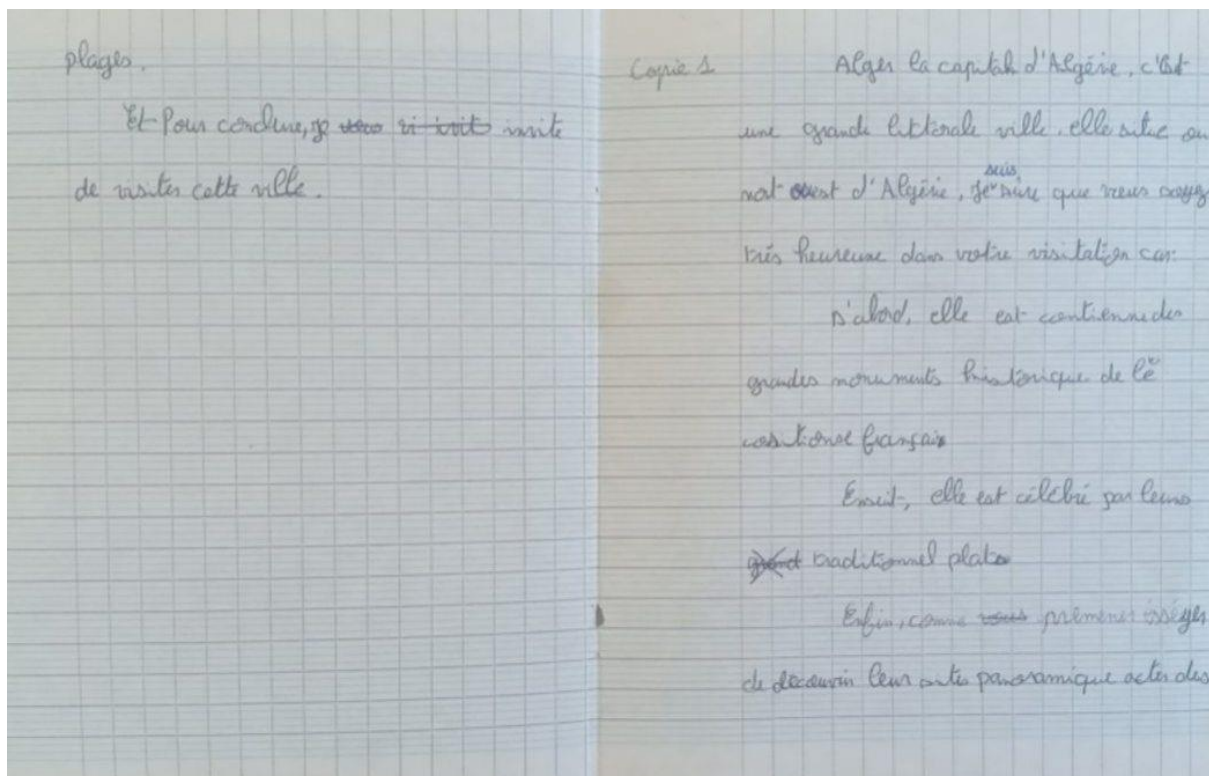 plages.
Et Pour conclure, je vous vi invit invite
de visiter cette ville.
Copie 1
Alger la capitale d'Algérie, c'est
une grande littorale ville, elle situe au
nort ouest d'Algérie, je suis sûre que vous soyez
très heureuse dans votre visitation car:
D'abord, elle est contienne des
grandes monuments historique de
français
Ensuit, elle est célébré par leurs
grand traditionnel plats
Enfin, comme vous
de découvrir leur sites panoramique des